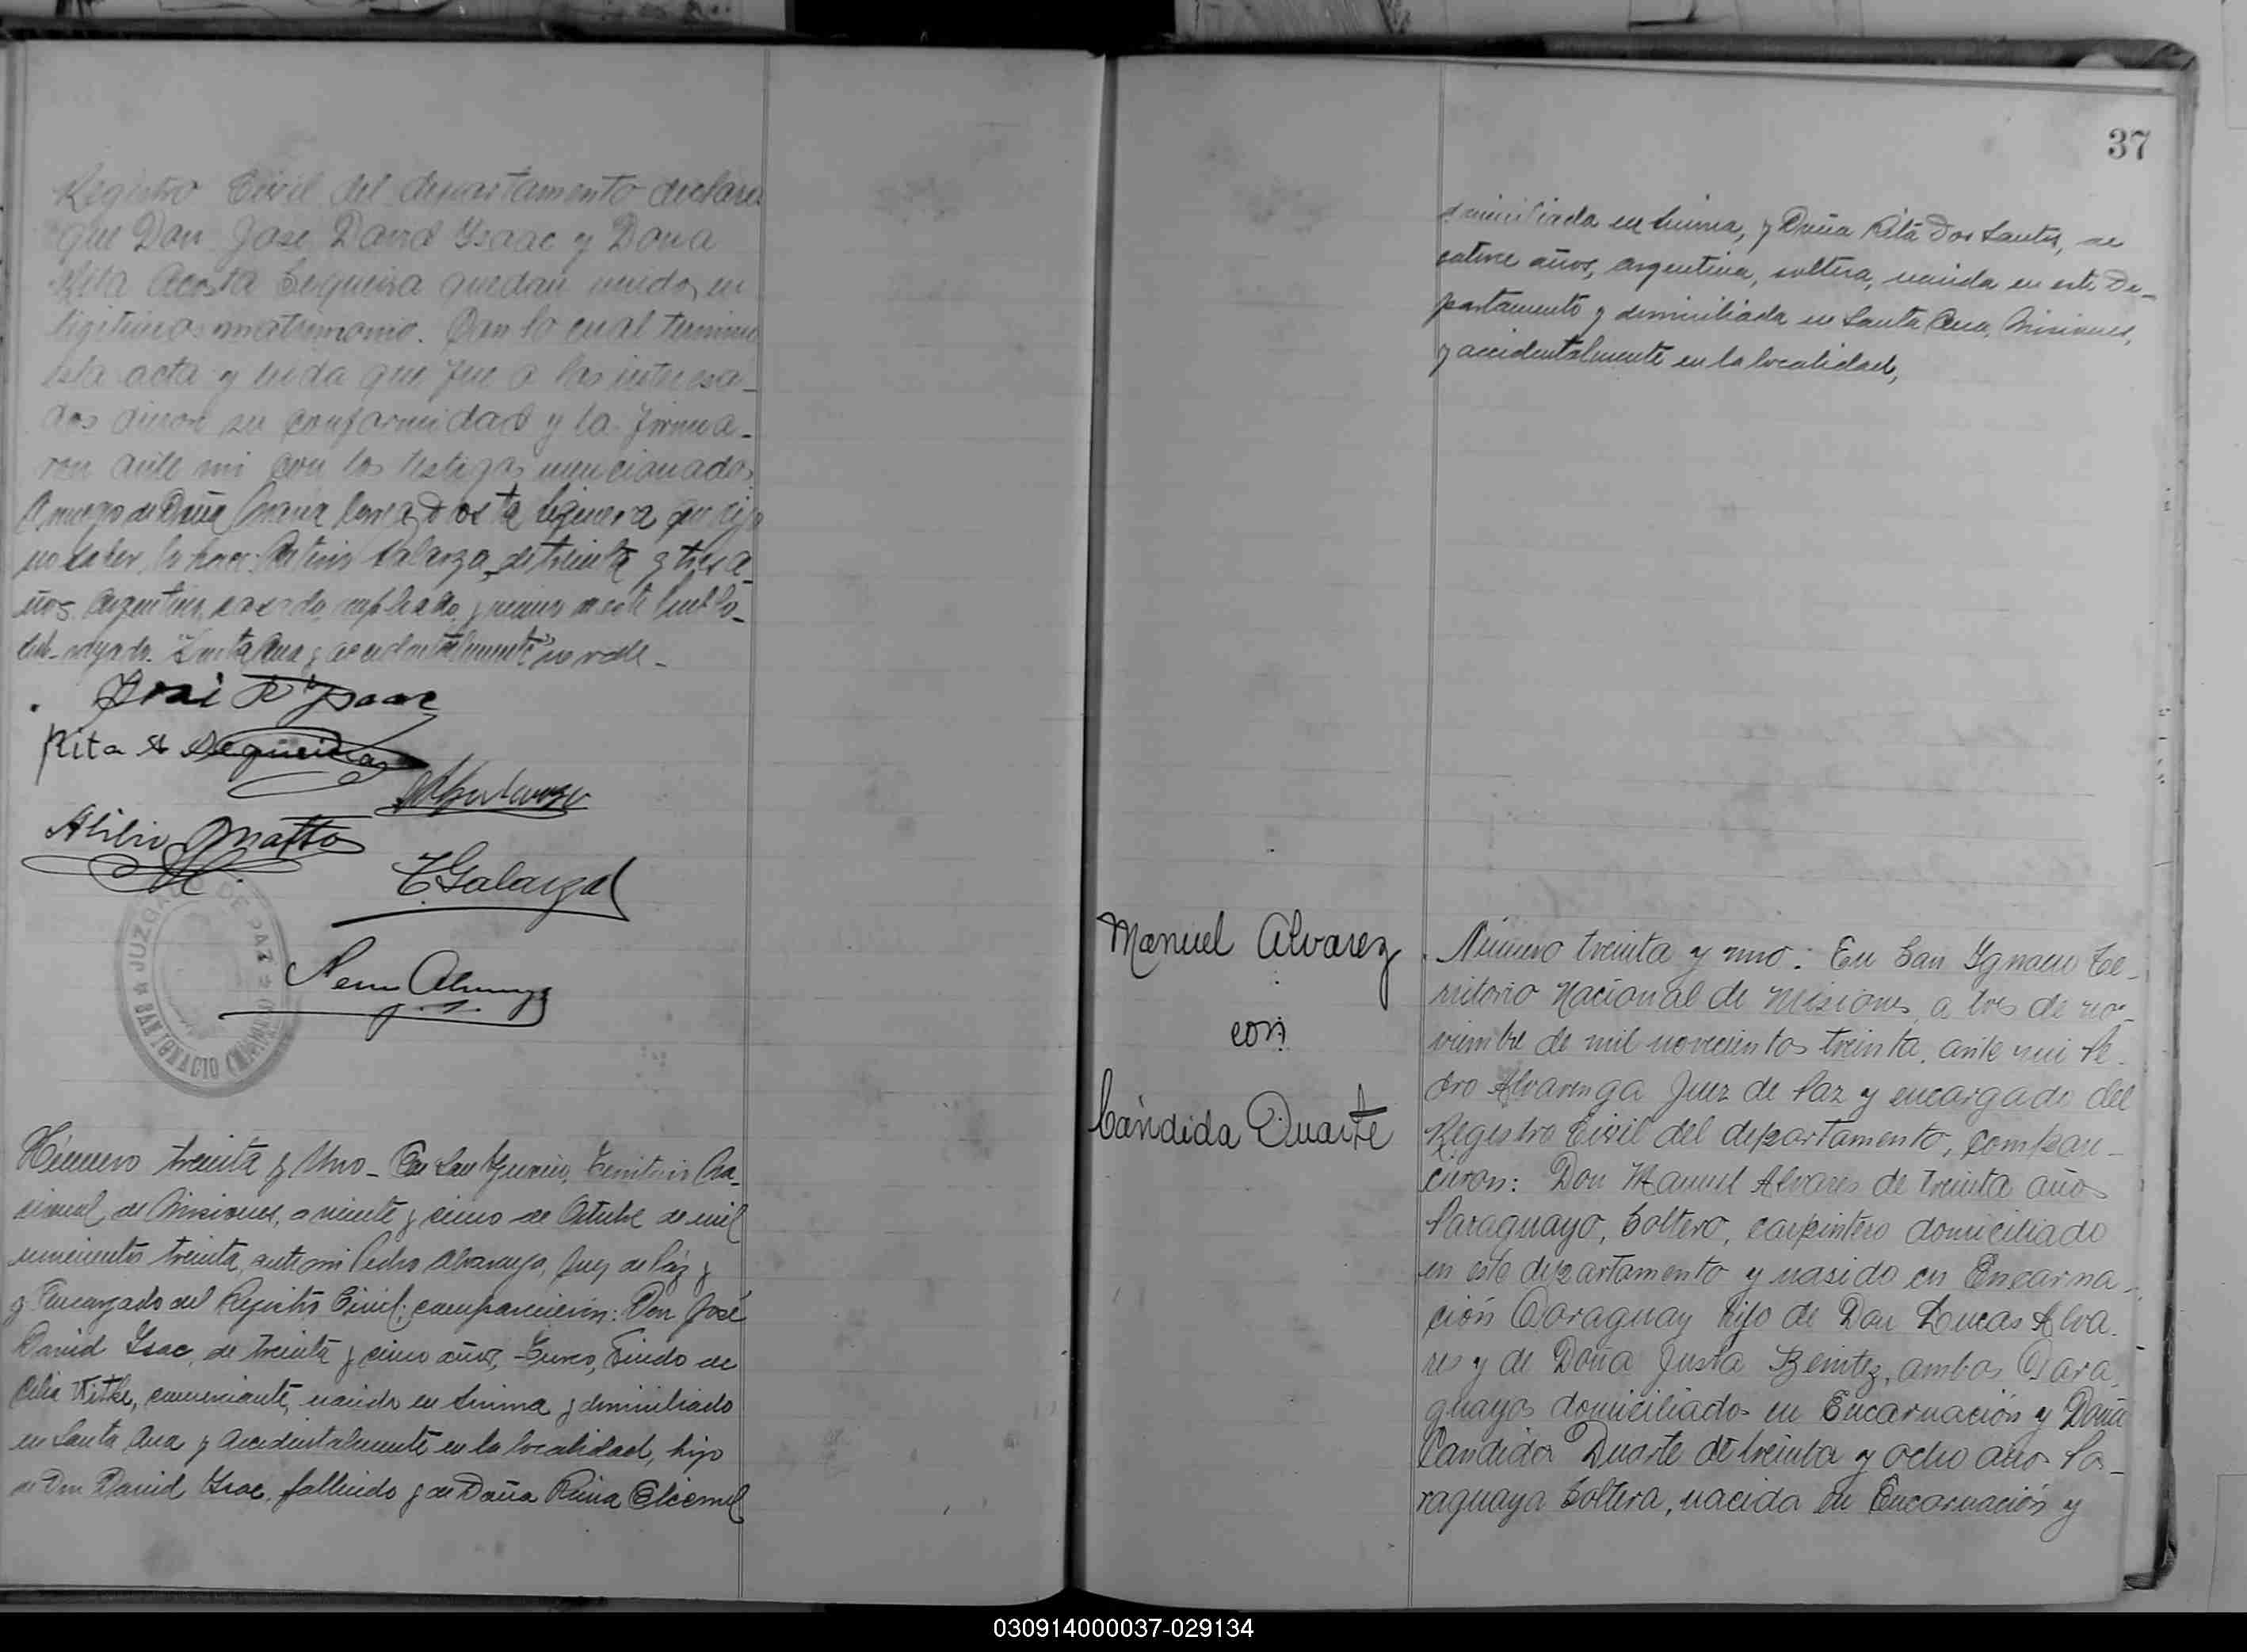 Registro Civil del departamento declara
que Don José David Ysaac y Doña
Rita Acosta Sequeira quedan unidos en
legitimo matrimonio. Con lo cual termino
esta acta y leida que fue a los interesa-
dos dieron su conformidad y la firma-
ron ante mi con los testigos mencionados
A ruego de Doña Maria que dijo
no saber, lo hace Galarza, de treinta y tres a-
ños, Argentino, casado, empleado, y vecino de este Pueblo-
"Santa Ana y accidentalmente" no vale-
José D Ysaac
Rita A Sequeira
Atilio Matto
Galarza
JUZGADO DE PAZ
SAN IGNACIO (MISIONES)
Número treinta y Uno- En San Ignacio, Territorio Na-
cional de Misiones, a veinte y cinco de Octubre de mil
novecientos treinta, ante mi Pedro Alvarenga, Juez de Páz y
y Encargado del Registro Civil; comparecieron: Don José
David Isac, de treinta y cinco años, Turco, Viudo de
Celia, comerciante, nacido en y domiciliado
en Santa Ana y accidentalmente en la localidad, hijo
de Don David Isac, fallecido y de Doña
37
domiciliada en, y Doña Rita Dos Santos, de
catorce años, argentina, soltera, nacida en este De-
partamento y domiciliada en Santa Ana, Misiones,
y accidentalmente en la localidad,
Manuel Alvarez
con
Cándida Duarte
Número treinta y uno: En San Ygnacio Te-
rritorio Nacional de Misiones, a tres de no-
viembre de mil novecientos treinta, ante mi Pe-
dro Alvarenga Juez de Paz y encargado del
Registro Civil del departamento, compare-
cieron: Don Manuel Alvares de treinta años
Paraguayo, Soltero, carpintero domiciliado
en este departamento y nasido en Encarna-
ción Paraguay hijo de Don Lucas Alva-
res y de Doña Justa Benitez, ambos Para-
guayos domiciliados en Encarnación y Doña
Candida Duarte de treinta y ocho años Pa-
raguaya Soltera, nacida en Encarnación y
030914000037-029134